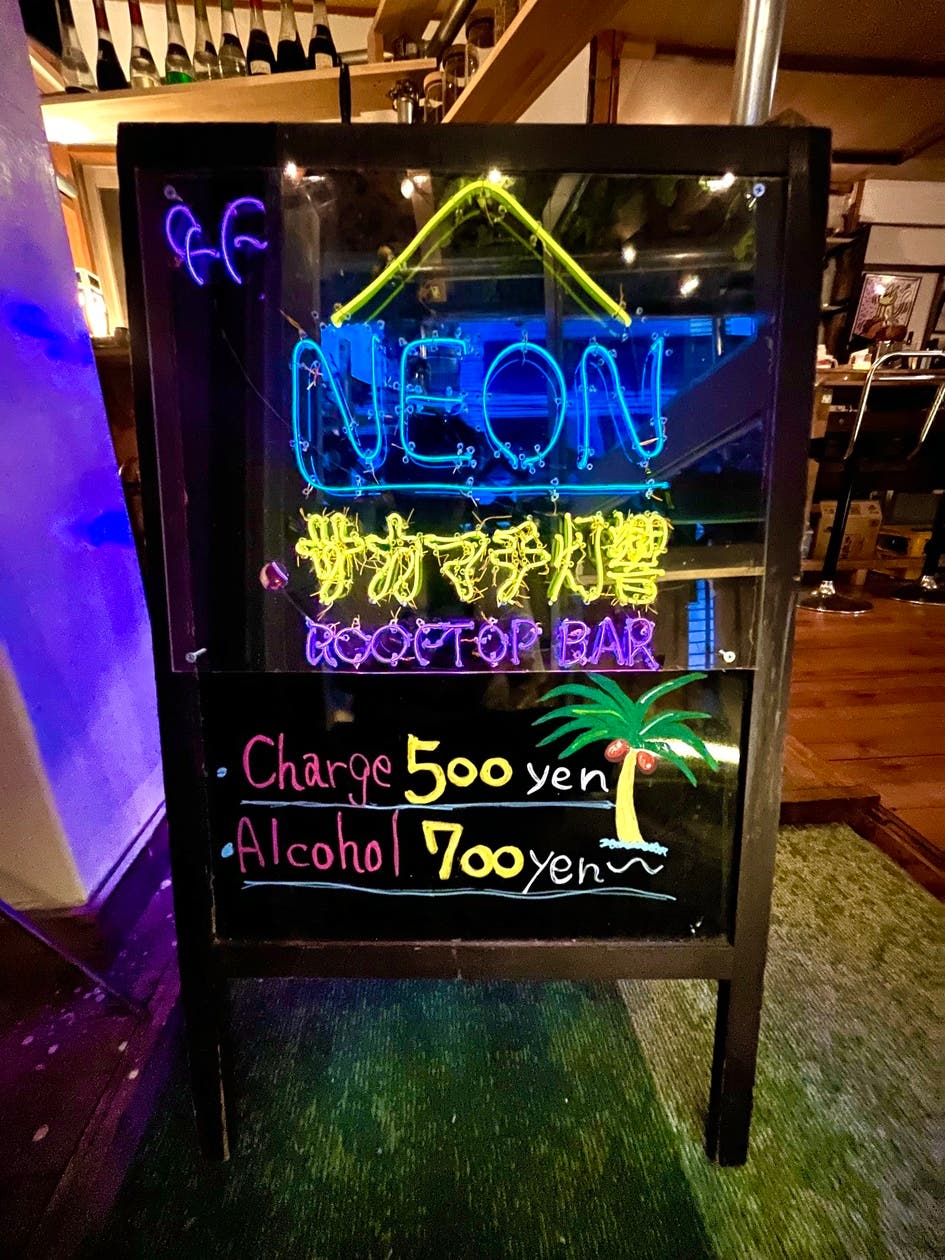 NEON
サカマチ灯響
ROOFTOP BAR
Charge 500 yen
Alcohol 700yen〜